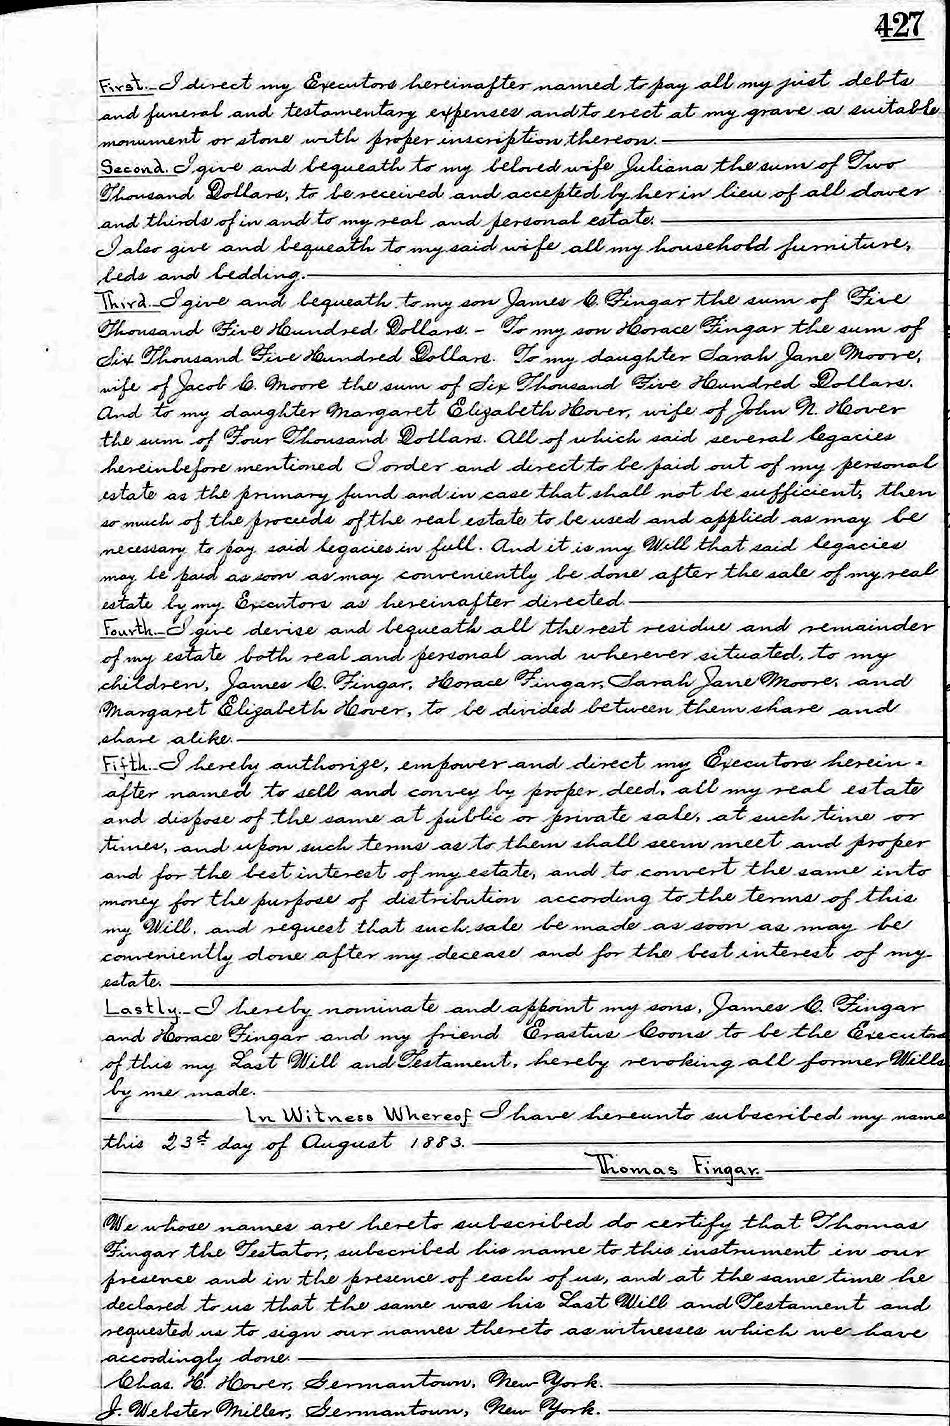 427
First.- I direct my Executors hereinafter named to pay all my just debts
and funeral and testamentary expenses and to erect at my grave a suitable
monument or stone with proper inscription thereon.
Second. I give and bequeath to my beloved wife Juliana the sum of Two
Thousand Dollars, to be received and accepted by her in lieu of all dower
and thirds of in and to my real and personal estate.
I also give and bequeath to my said wife all my household furniture,
beds and bedding.
Third. I give and bequeath to my son James C. Fingar the sum of Five
Thousand Five Hundred Dollars. - To my son Horace Fingar the sum of
Six Thousand Five Hundred Dollars. To my daughter Sarah Jane Moore,
wife of Jacob C. Moore the sum of Six Thousand Five Hundred Dollars.
And to my daughter Margaret Elizabeth Hover, wife of John N. Hover
the sum of Four Thousand Dollars. All of which said several legacies
hereinbefore mentioned I order and direct to be paid out of my personal
estate as the primary fund and in case that shall not be sufficient, then
so much of the proceeds of the real estate to be used and applied as may be
necessary to pay said legacies in full. And it is my Will that said legacies
may be paid as soon as may conveniently be done after the sale of my real
estate by my Executors as hereinafter directed.
Fourth.- I give devise and bequeath all the rest residue and remainder
of my estate both real and personal and wherever situated, to my
children, James C. Fingar, Horace Fingar, Sarah Jane Moore, and
Margaret Elizabeth Hover, to be divided between them share and
share alike.
Fifth.- I hereby authorize, empower and direct my Executors herein=
after named to sell and convey by proper deed, all my real estate
and dispose of the same at public or private sale, at such time or
times, and upon such terms as to them shall seem meet and proper
and for the best interest of my estate, and to convert the same into
money for the purpose of distribution according to the terms of this
my Will, and request that such sale be made as soon as may be
conveniently done after my decease and for the best interest of my
estate.
Lastly.- I hereby nominate and appoint my sons, James C. Fingar
and Horace Fingar and my friend Erastus Coons to be the Executors
of this my Last Will and Testament, hereby revoking all former Wills
by me made.
In Witness Whereof I have hereunto subscribed my name
this 23d day of August 1883.
Thomas Fingar.
We whose names are hereto subscribed do certify that Thomas
Fingar the Testator, subscribed his name to this instrument in our
presence and in the presence of each of us, and at the same time he
declared to us that the same was his Last Will and Testament and
requested us to sign our names thereto as witnesses which we have
accordingly done.
Chas. H. Hover, Germantown, New York.
J. Webster Miller, Germantown, New York.